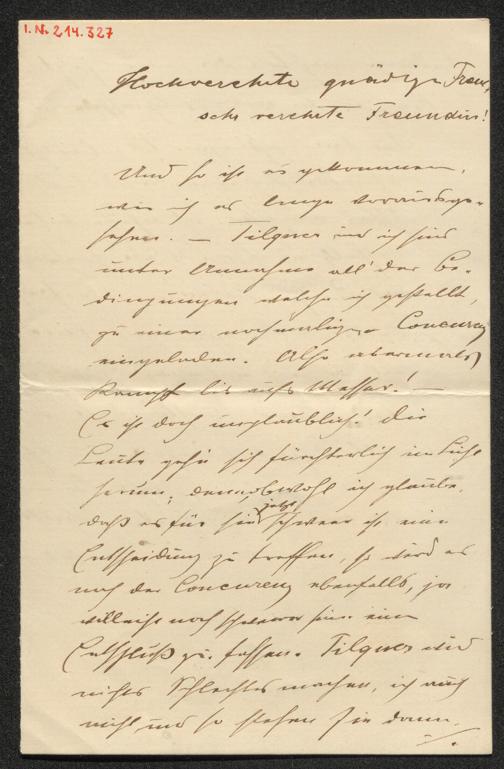 I. N. 214.327
Hochverehrte gnädige Frau,
sehr verehrte Freundin!
Und so ist es gekommen,
wie ich es lange vorausge-
sehen. — Tilgner und ich sind
unter Annahme all' der Be-
dingungen welche ich gestellt,
zu einer nochmaligen Concurenz
eingeladen. Also abermals
Kampf bis aufs Messer! —
Es ist doch unglaublich! Die
Leute gehn sich fürchterlich im Licht
herum, denn obwohl ich glaube
daß es für sie jetzt schwer ist eine
Entscheidung zu treffen, so wird es
nach der Concurenz ebenfalls, ja
vielleicht noch schwerer sein einen
Entschluß zu fassen. Tilgner wird
nichts Schlechtes machen, ich auch
nicht, und so stehen sie dann